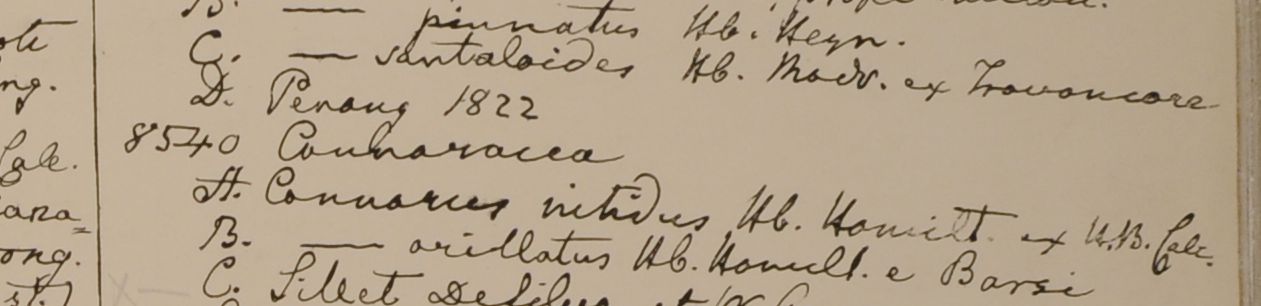 B. — pinnatus Hb. Heyn.
C. — santaloides Hb. Madr. ex Travancore
D. Penang 1822
8540 Connaracea
A. Connarus nitidus Hb. Hamilt. ex H.B. Calc.
B. — arillatus Hb. Hamilt. e Barsi
C. Sillet
Calc.
ong.